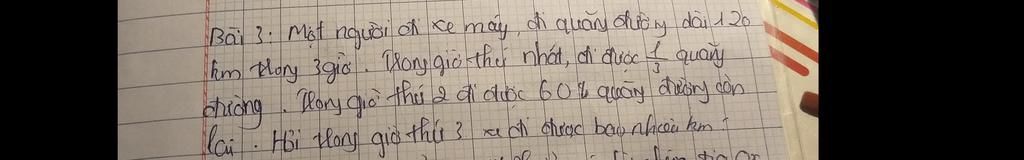 Bài 3: Một người đi xe máy, đi quãng đường dài 120
km trong 3 giờ. Trong giờ thứ nhất, đi được 1/3 quãng
đường. Trong giờ thứ 2 đi được 60% quãng đường còn
lại. Hỏi trong giờ thứ 3 xe đi được bao nhiêu km?